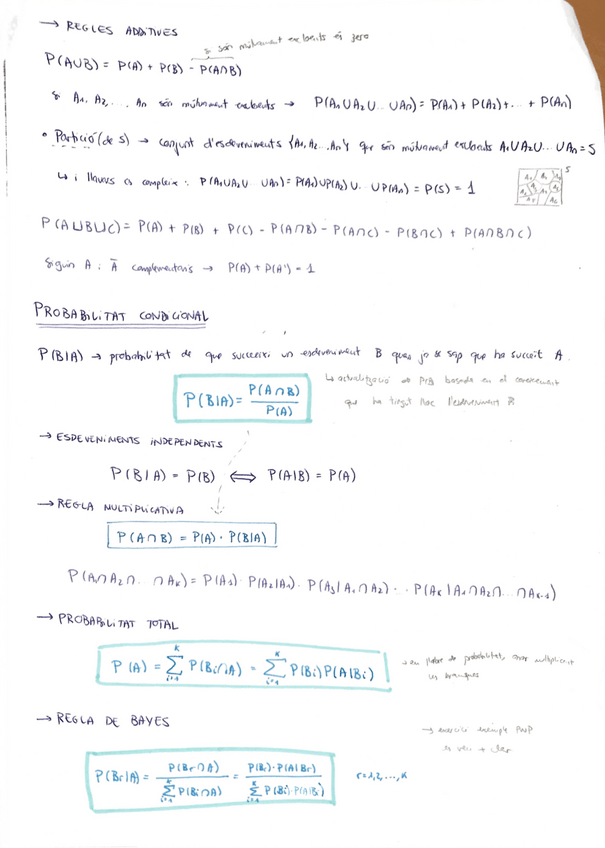 → REGLES ADDITIVES
si són mútuament excloents és zero
P(A∪B) = P(A) + P(B) - P(A∩B)
Si A₁, A₂, ... An són mútuament excloents → P(A₁∪A₂∪...∪An) = P(A₁) + P(A₂) + ... + P(An)
• Partició (de S) → conjunt d'esdeveniments {A₁, A₂... An} que són mútuament excloents A₁∪A₂∪...∪An = S
↳ i llavors es compleix: P(A₁∪A₂∪ ∪An) = P(A₁)∪P(A₂)∪...∪P(An) = P(S) = 1
S
P(A∪B∪C) = P(A) + P(B) + P(C) - P(A∩B) - P(A∩C) - P(B∩C) + P(A∩B∩C)
Siguin A i Ā complementaris → P(A) + P(A') = 1
PROBABILITAT CONDICIONAL
P(B|A) → probabilitat de que succeeixi un esdeveniment B quan ja se sap que ha succeït A.
P(B|A) = P(A∩B) / P(A)
↳ actualització de basada en el coneixement
que ha tingut lloc l'esdeveniment
→ ESDEVENIMENTS INDEPENDENTS
P(B|A) = P(B) ⟺ P(A|B) = P(A)
→ REGLA MULTIPLICATIVA
P(A∩B) = P(A) · P(B|A)
P(A₁∩A₂∩... ∩Aₖ) = P(A₁) · P(A₂|A₁) · P(A₃|A₁∩A₂) ·· P(Aₖ|A₁∩A₂∩...∩Aₖ₋₁)
→ PROBABILITAT TOTAL
P(A) = Σᵢ₌₁ᴷ P(Bi∩A) = Σᵢ₌₁ᴷ P(Bi) P(A|Bi)
→ en de probabilitat, multiplicant
les branques
→ REGLA DE BAYES
→ exercici exemple
P(Br|A) = P(Br∩A) / Σᵢ₌₁ᴷ P(Bi∩A) = P(Br) · P(A|Br) / Σᵢ₌₁ᴷ P(Bi) · P(A|Bi) r=1,2,...,K